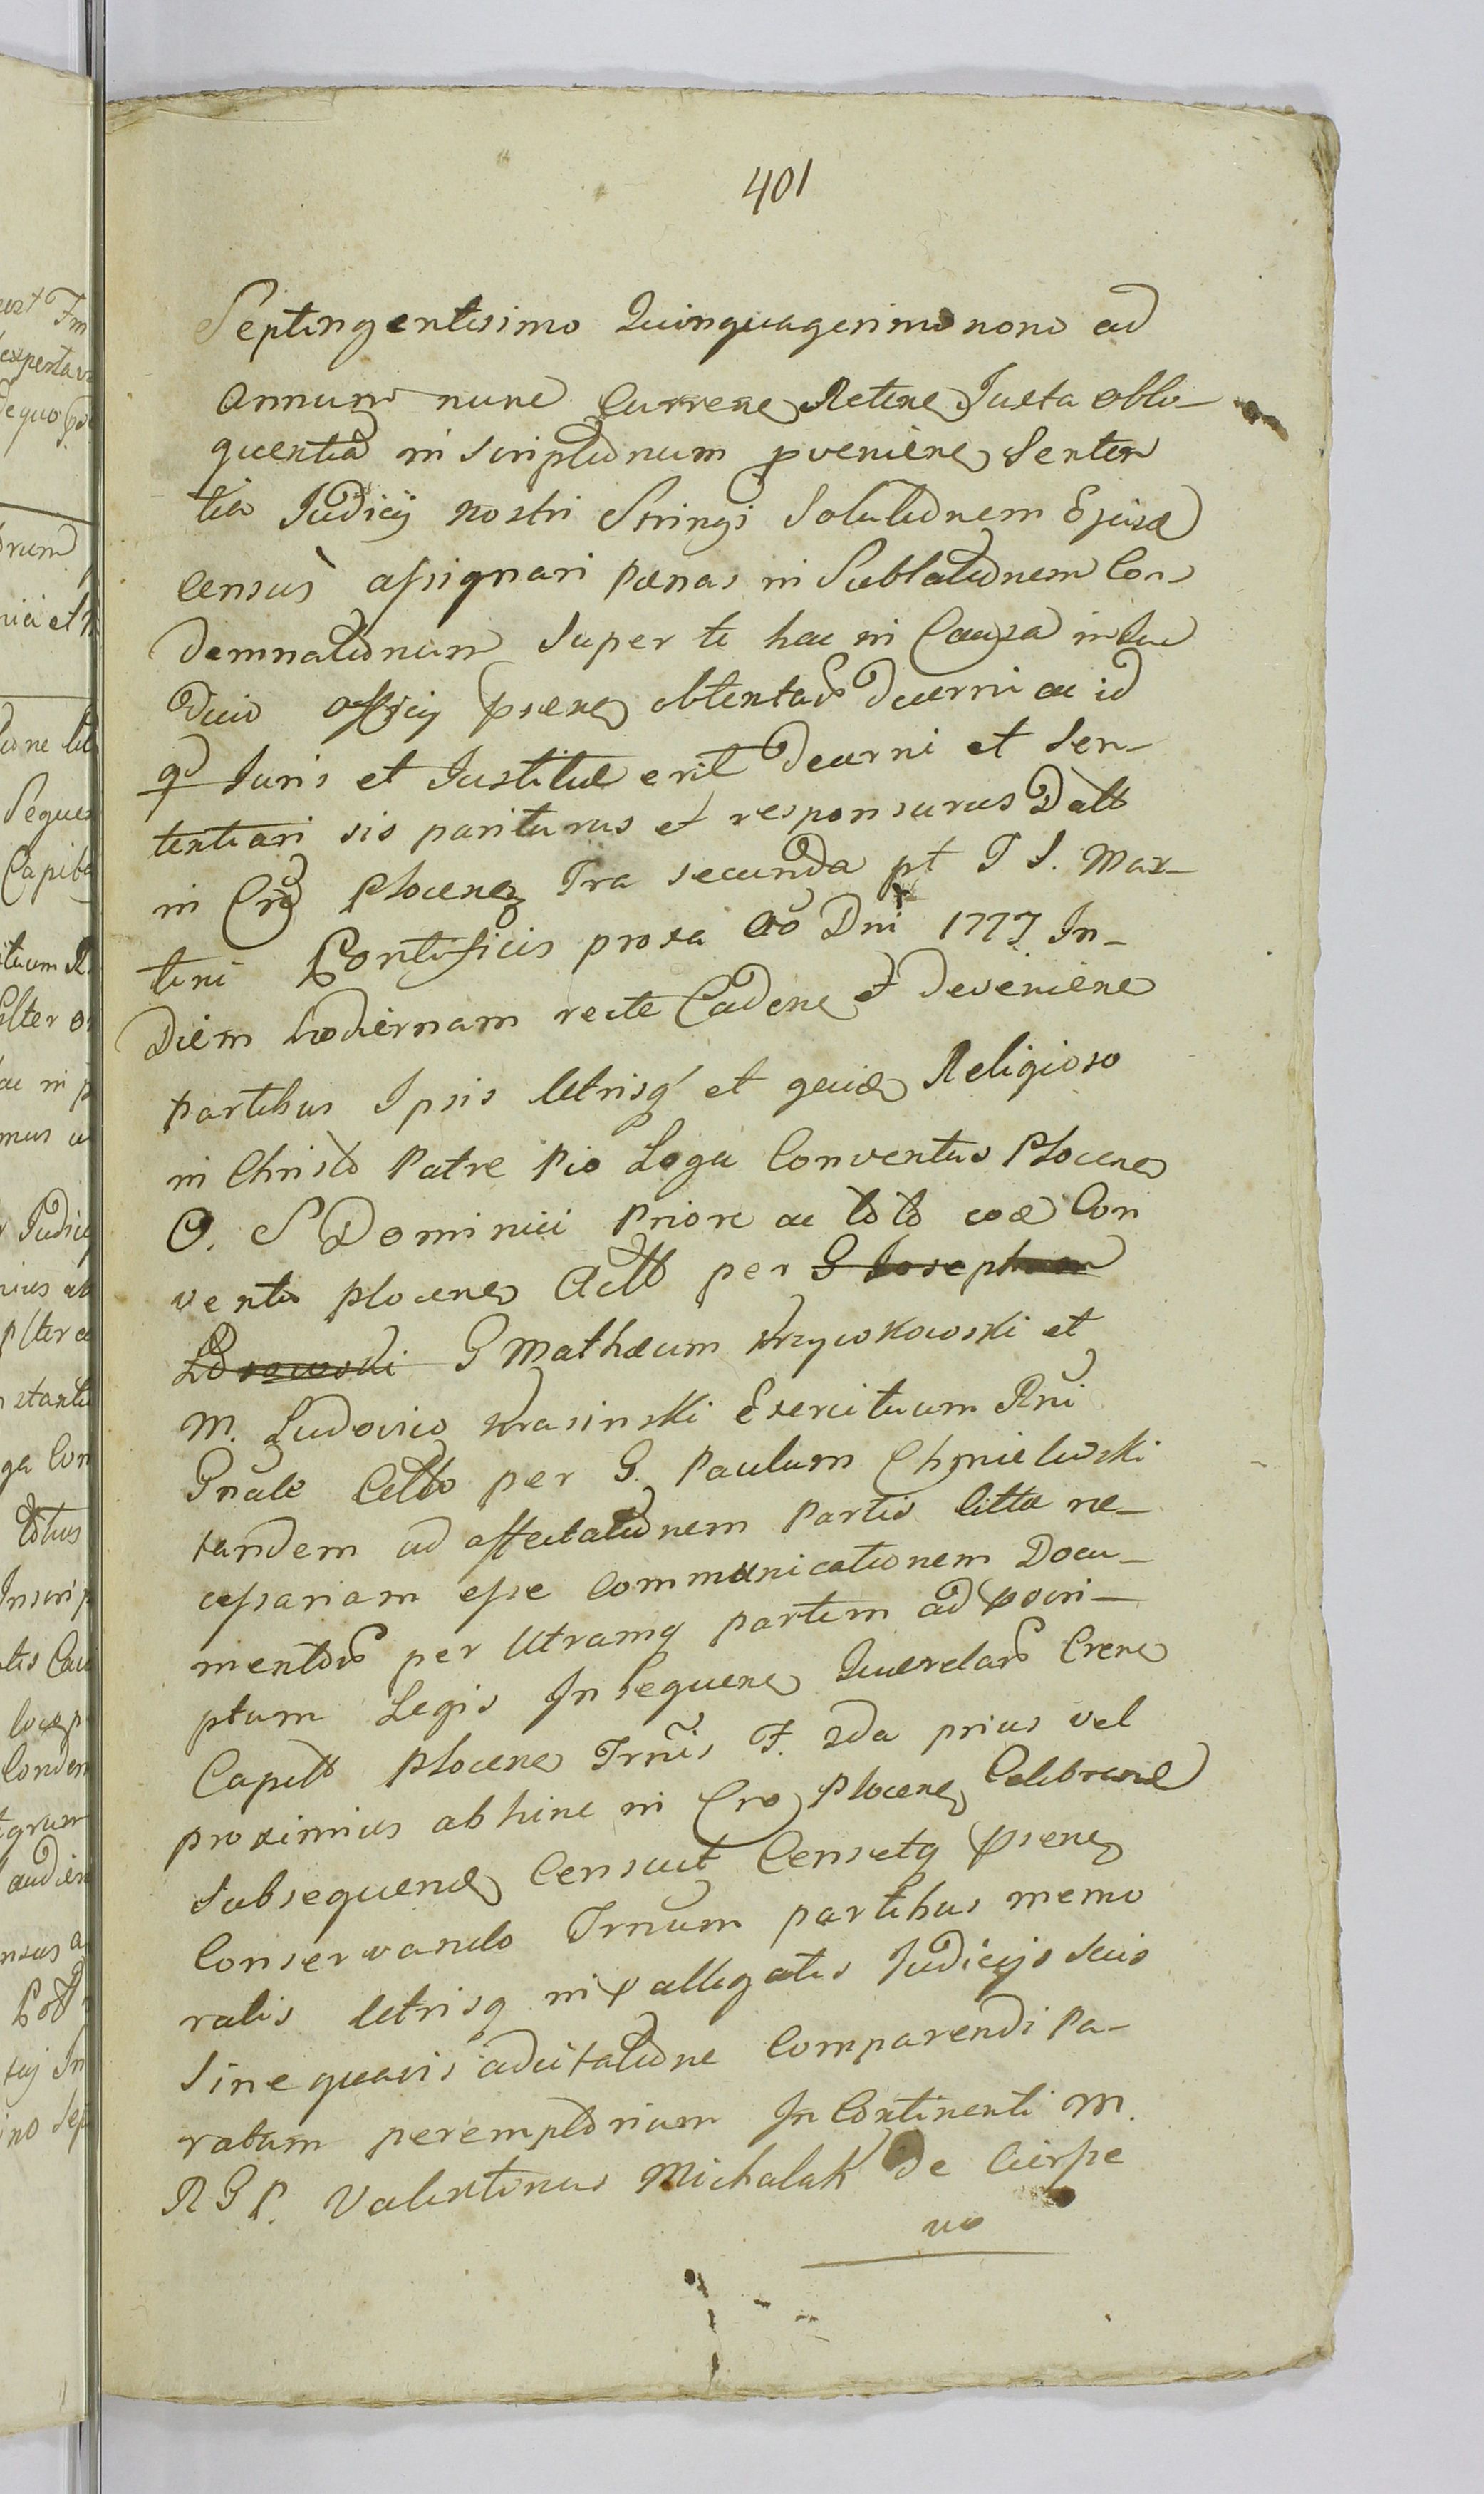 401
Septingentesimo Quinquagesimo nono ad
Annum nunc Curren Reten Juxta oblo-
quentia inscriptionum pvenien Senten
tia Judicij nostri Stringi Solutionem Ejusd
Census assignari pænas in Sublationem Con
demnationum super te hac in Causa in Iu
dicio Officij psen obtentas decerni ac id
qd Juris et Justitiæ erit decerni et Sen-
tentiari sis pariturus et responsurus Datt
in Cro Plocen Fra secunda pt F S. Mar-
tini Pontificis proxa Ao Dni 1777 In-
Diem hodiernam recte Caden et devenien
partibus Ipsis Utrisq et quid Religioso
in Christo Patre Pio Loga Conventus Plocen
O. S Dominici Priore ac toto eod Con
ventu plocen Actt per G Josephum
G Mathæum Krzywkowski et
M. Ludovico Krasinski Exercituum Rni
Gnale Citto per G. Paulum Chmielewski
tandem ad affectationem Partis Cittæ ne-
cessariam esse Communicationem Docu-
mentos per Utramq partem ad pscri-
ptum Legis Insequen Querelars Cren
Capitt Plocen Trnis F. 2da prius vel
proximius abhinc in Cro Plocen Celebrand
Subsequend Censuit Censetq psen
Conservando Trnum partibus memo
ratis Utrisq in p allegatis Judicijs suis
Sine quavis adcitatione Comparendi Pa-
ratum peremptorium In Continenti M.
R G P. Valentinus Michalak de Cierpe